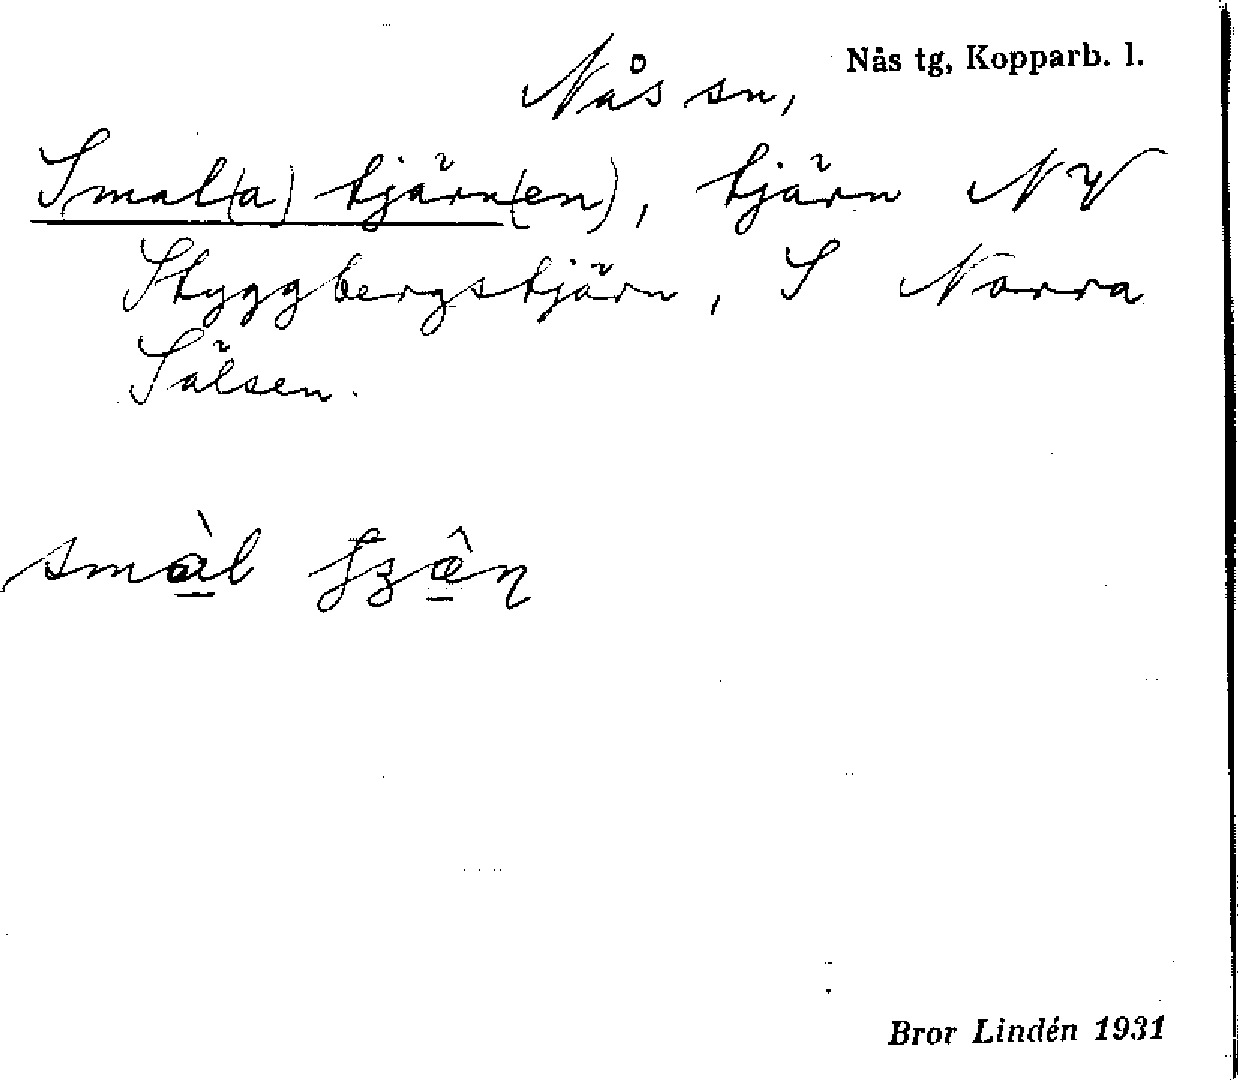 Nås tg, Kopparb. l.
Nås sn,
Smal(a) tjärn(en), tjärn NV
Styggbergstjärn, S Norra
Sälsen.
smàl
Bror Lindén 1931